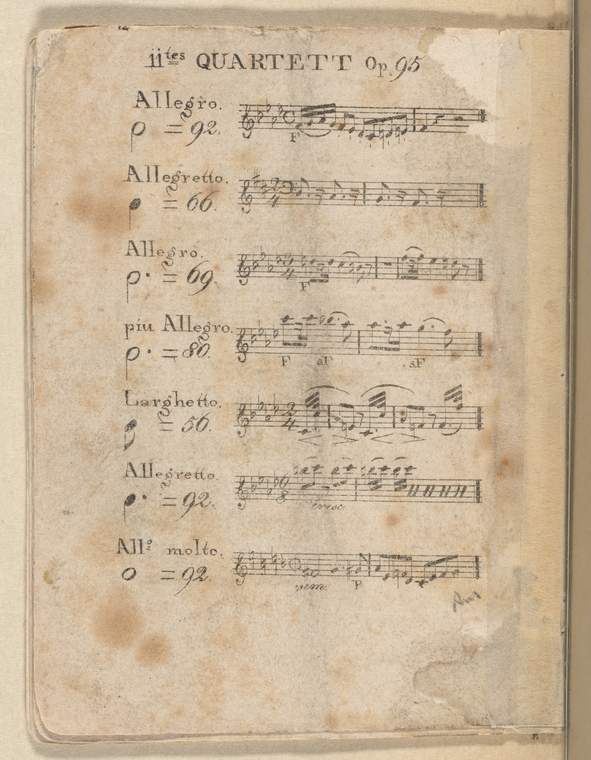 11tes QUARTETT Op. 95
Allegro.
= 92.
F
Allegretto.
= 66.
Allegro.
= 69.
F
piu Allegro.
= 80.
F sF sF
Larghetto.
= 56.
Allegretto.
= 92.
cresc
Allo molto.
= 92.
sem. P